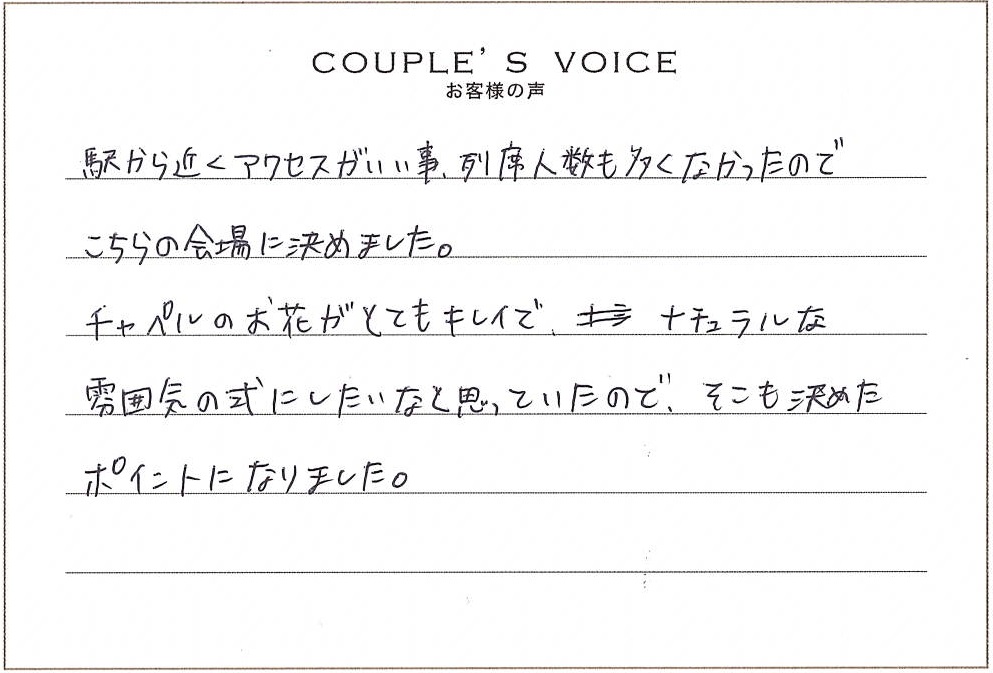 COUPLE'S VOICE
お客様の声
駅から近くアクセスがいい事、列席人数も多くなかったので
こちらの会場に決めました。
チャペルのお花がとてもキレイで、ナチュラルな
雰囲気の式にしたいなと思っていたので、そこも決めた
ポイントになりました。